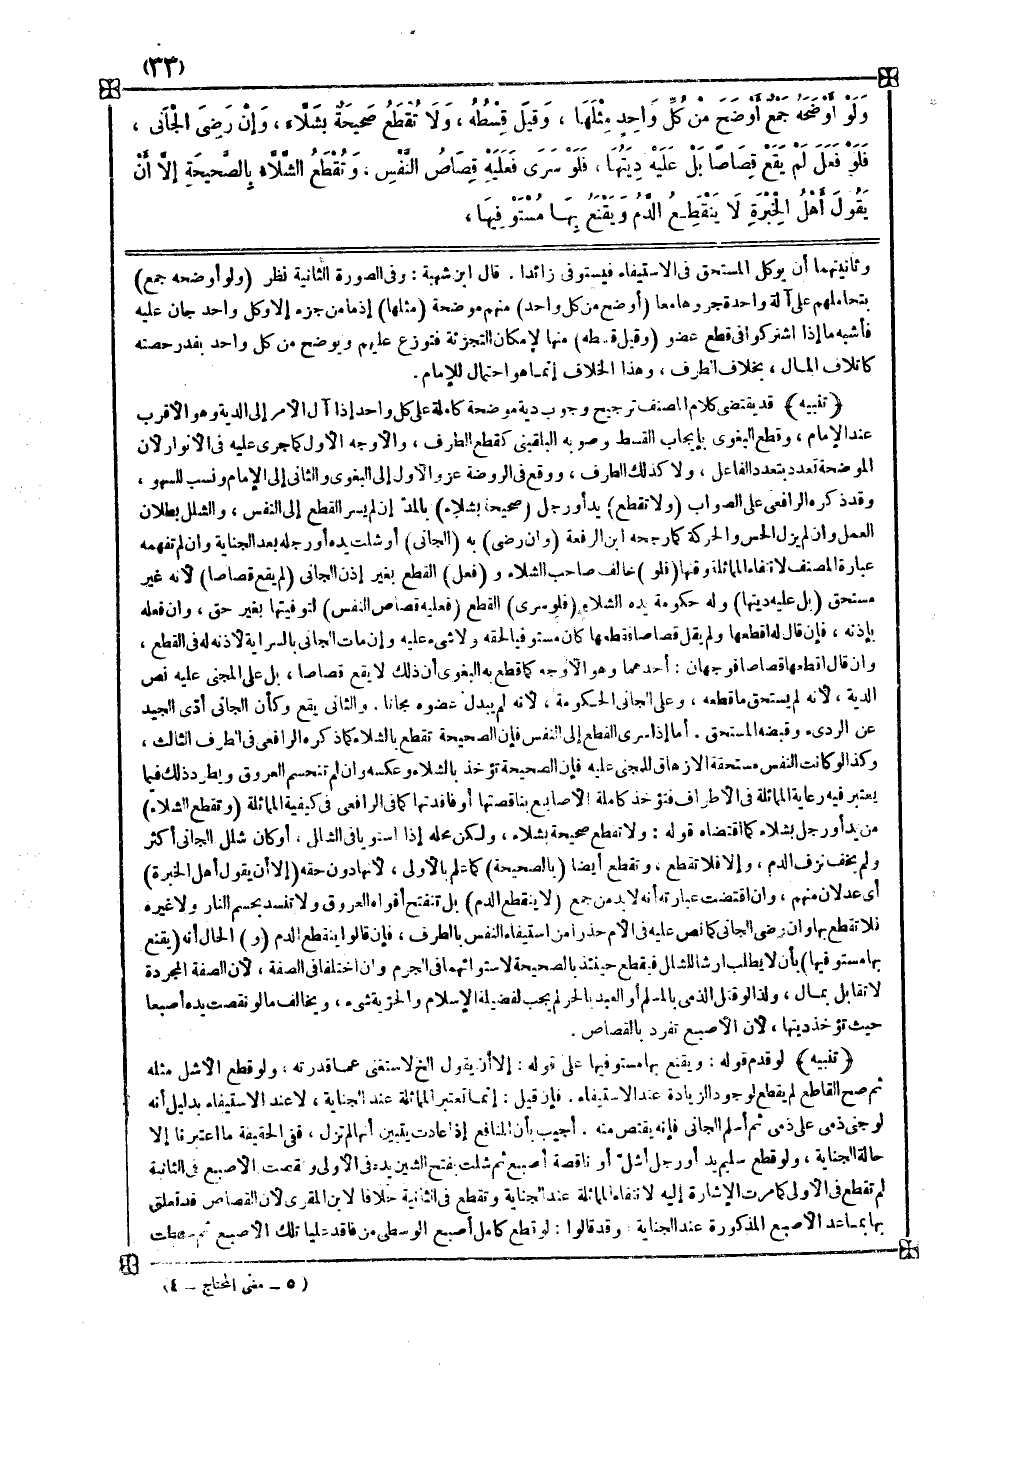 (٣٣)
وَلَوْ أَوْضَحَهُ جَمْعٌ أُوضِحَ مِنْ كُلِّ وَاحِدٍ مِثْلُهَا ، وَقِيلَ قِسْطُهُ ، وَلَا تُقْطَعُ صَحِيحَةٌ بِشَلَّاءَ ، وَإِنْ رَضِيَ الْجَانِى ،
فَلَوْ فَعَلَ لَمْ يَقَعْ قِصَاصًا بَلْ عَلَيْهِ دِيَتُهَا ، فَلَوْ سَرَى فَعَلَيْهِ قِصَاصُ النَّفْسِ ، وَتُقْطَعُ الشَّلَّاءُ بِالصَّحِيحَةِ إلَّا أَنْ
يَقُولَ أَهْلُ الْخِبْرَةِ لَا يَنْقَطِعُ الدَّمُ وَيَقْنَعُ بِهَا مُسْتَوْفِيهَا ،
وثانيتهما أن يوكل المستحق فى الاستيفاء فيستوفى زائدا . قال ابن شهبة : وفى الصورة الثانية نظر (ولو أوضحه جمع)
بتحاملهم على آلة واحدة جروها معا (أوضح من كل واحد) منهم موضحة (مثلها) إذ ما من جزء إلا وكل واحد جان عليه
فأشبه ما إذا اشتركوا فى قطع عضو (وقيل قسطه) منها لإمكان التجزئة فتوزع عليهم ويوضح من كل واحد بقدر حصته
كاتلاف المال ، بخلاف الطرف ، وهذا الخلاف إنما هو احتمال للإمام .
﴿تنبيه﴾ قد يقتضى كلام المصنف ترجيح وجوب دية موضحة كاملة على كل واحد إذا آل الأمر إلى الدية وهو الأقرب
عند الإمام ، وقطع البغوى بإيجاب القسط وصوبه البلقينى كقطع الطرف ، والأوجه الأول كما جرى عليه فى الأنوار لأن
الموضحة تعدد بتعدد الفاعل ، ولا كذلك الطرف ، ووقع فى الروضة عزو الأول إلى البغوى والثانى إلى الإمام ونسب للسهو ،
وقد ذكره الرافعى على الصواب (ولا تقطع) يد أو رجل (صحيحة بشلاء) بالمد إن لم يسر القطع إلى النفس ، والشلل بطلان
العمل وإن لم يزل الحس والحركة كما رجحه ابن الرفعة (وان رضى) به (الجانى) أو شلت يده أو رجله بعد الجناية وان لم تفهمه
عبارة المصنف لانتفاء المماثلة وقتها (فلو) خالف صاحب الشلاء و (فعل) القطع بغير إذن الجانى (لم يقع قصاصا) لأنه غير
مستحق (بل عليه ديتها) وله حكومة يده الشلاء (فلو سرى) القطع (فعليه قصاص النفس) لتوفيتها بغير حق ، وان فعله
بإذنه ، فإن قال له اقطعها ولم يقل قصاصا فقطعها كان مستوفيا لحقه ولا شىء عليه وإن مات الجانى بالسراية لأذنه له فى القطع ،
وان قال اقطعها قصاصا فوجهان : أحدهما وهو الأوجه كما قطع به البغوى أن ذلك لا يقع قصاصا ، بل على المجنى عليه نصف
الدية ، لأنه لم يستحق ما قطعه ، وعلى الجانى الحكومة ، لأنه لم يبدل عضوه مجانا . والثانى يقع وكأن الجانى أدّى الجيد
عن الردىء وقبضه المستحق . أما إذا سرى القطع إلى النفس فإن الصحيحة تقطع بالشلاء كما ذكره الرافعى فى الطرف الثالث ،
وكذا لو كانت النفس مستحقة الإزهاق للمجنى عليه فإن الصحيحة تؤخذ بالشلاء وعكسه وان لم تنحسم العروق ويطرد ذلك فيما
يعتبر فيه رعاية المماثلة فى الأطراف فتؤخذ كاملة الأصابع بناقصتها أو فاقدتها كما فى الرافعى فى كيفية المماثلة (وتقطع الشلاء)
من يد أو رجل بشلاء كما اقتضاه قوله : ولا تقطع صحيحة بشلاء ، ولكن محله إذا استويا فى الشلل ، أو كان شلل الجانى أكثر
ولم يخف نزف الدم ، وإلا فلا تقطع . وتقطع أيضا (بالصحيحة) كما علم بالأولى ، لأنها دون حقه (إلا أن يقول أهل الخبرة)
أى عدلان منهم ، وان اقتضت عبارته أنه لابد من جمع (لا ينقطع الدم) بل تنفتح أفواه العروق ولا تنسد بحسم النار ولا غيره
فلا تقطع بها وان رضى الجانى كما نص عليه فى الأم حذرا من استيفاء النفس بالطرف ، فإن قالوا ينقطع الدم (و) الحال أنه (يقنع
بها مستوفيها) بأن لا يطلب أرشا للشلل فيقطع حينئذ بالصحيحة لاستوائهما فى الجرم وان اختلفا فى الصفة ، لأن الصفة المجردة
لا تقابل بمال ، ولذا لو قتل الذمى بالمسلم أو العبد بالحر لم يجب لفضيلة الإسلام والحرية شىء ، ويخالف ما لو نقصت يده أصبعا
حيث تؤخذ ديتها ، لأن الأصبع تفرد بالقصاص .
﴿تنبيه﴾ لو قدم قوله : ويقنع بها مستوفيها على قوله : إلا أن يقول الخ لاستغنى عما قدرته ، ولو قطع الأشل مثله
ثم صح القاطع لم يقطع لوجود الزيادة عند الاستيفاء . فإن قيل : إنما تعتبر المماثلة عند الجناية ، لا عند الاستيفاء بدليل أنه
لو جنى ذمى على ذمى ثم أسلم الجانى فإنه يقتص منه . أجيب بأن المنافع إذا عادت يتبين أنها لم تزل ، ففى الحقيقة ما اعتبرنا إلا
حالة الجناية ، ولو قطع سليم يد أو رجل أشلّ أو ناقصة أصبع ثم شلت بفتح الشين يده فى الأولى ونقصت الأصبع فى الثانية
لم تقطع فى الأولى كما مرت الإشارة إليه لانتفاء المماثلة عند الجناية وتقطع فى الثانية خلافا لابن المقرى لأن القصاص قد تعلق
بها بما عدا الأصبع المذكورة عند الجناية . وقد قالوا : لو قطع كامل أصبع الوسطى من فاقد عليا تلك الأصبع ثم سقطت
( ٥ ـ مغنى المحتاج ـ ٤)